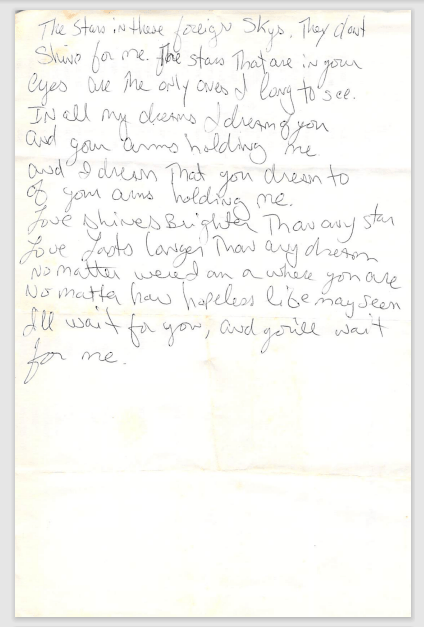 The Stars in these foreign Skys. They dont
Shine for me. The stars That are in your
eyes are the only ones I long to see.
In all my dreams I dream of you
and your arms holding me
and I dream That you dream to
of your arms holding me.
Love shines Brighter Than any star
Love Lasts longer Than any dream
No matter were I am a where you are
No matter how hopeless life may seem
I'll wait for you, and you'll wait
for me.